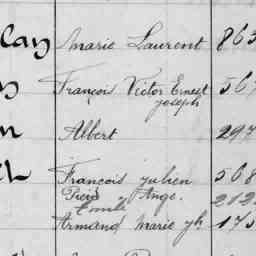 lan Marie Laurent 863
François Victor Ernest 567
Joseph
n Albert 297
François Julien 568
Pierre Ange. 212
Emile
Armand Marie jh 175